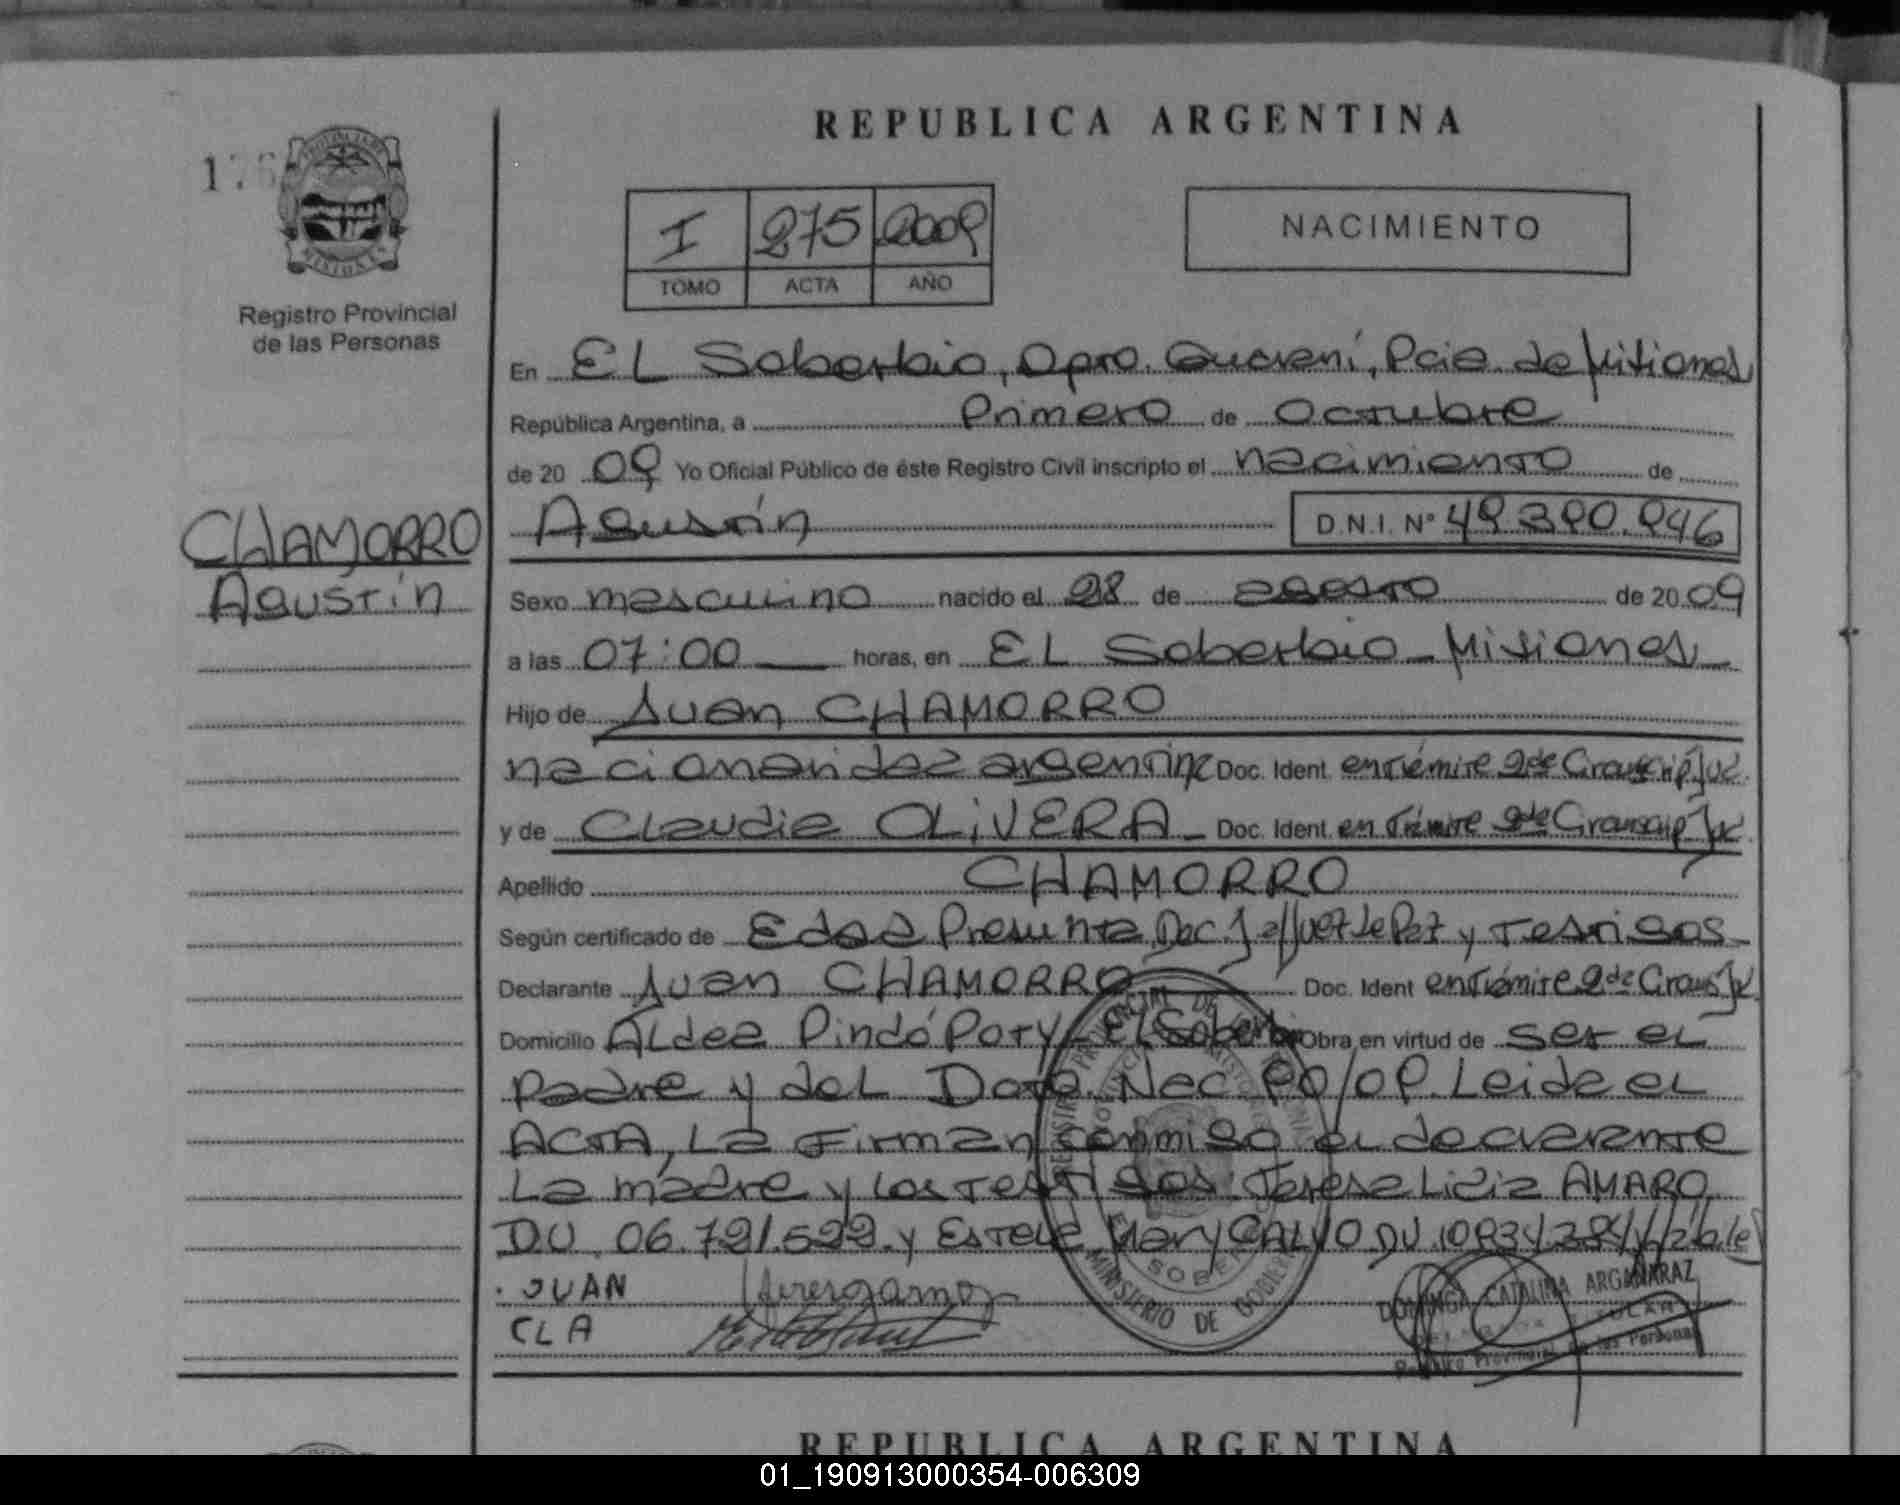 REPUBLICA ARGENTINA
PROVINCIA DE MISIONES
Registro Provincial
de las Personas
I 275 2009
TOMO ACTA AÑO
NACIMIENTO
En EL Soberbio, Dpto. Guaraní, Pcia. de Misiones
República Argentina, a Primero de Octubre
de 20 09 Yo Oficial Público de éste Registro Civil inscripto el nacimiento de
CHAMORRO
Agustín
Agustín D.N.I. Nº 49.390.946
Sexo masculino nacido el 28 de agosto de 20 09
a las 07:00 horas, en EL Soberbio - Misiones
Hijo de Juan CHAMORRO
argentina Doc. Ident en trámite 2de Circunscrip. Jud.
y de Claudia OLiVERA - Doc. Ident. en trámite 2de Circunscrip.
Apellido CHAMORRO
Según certificado de Edad Presunta, Dec. J a/Juez de Paz y Testigos
Declarante Juan CHAMORRO Doc. Ident en trámite 2de
Domicilio ALdea Pindó Poty El Soberbio Obra en virtud de ser eL
Padre y deL Nac. Leida eL
ACTA, La Firman conmigo el declarante
La madre y los testigos: Teresa Licia AMARO
DU. 06.791.522 y Estela Mary CALVO DU.
JUAN
CLA
DOMINGA CATALINA ARGAÑARAZ
Registro Provincial de las Personas
MINISTERIO DE GOBIERNO
REPUBLICA ARGENTINA
01_190913000354-006309